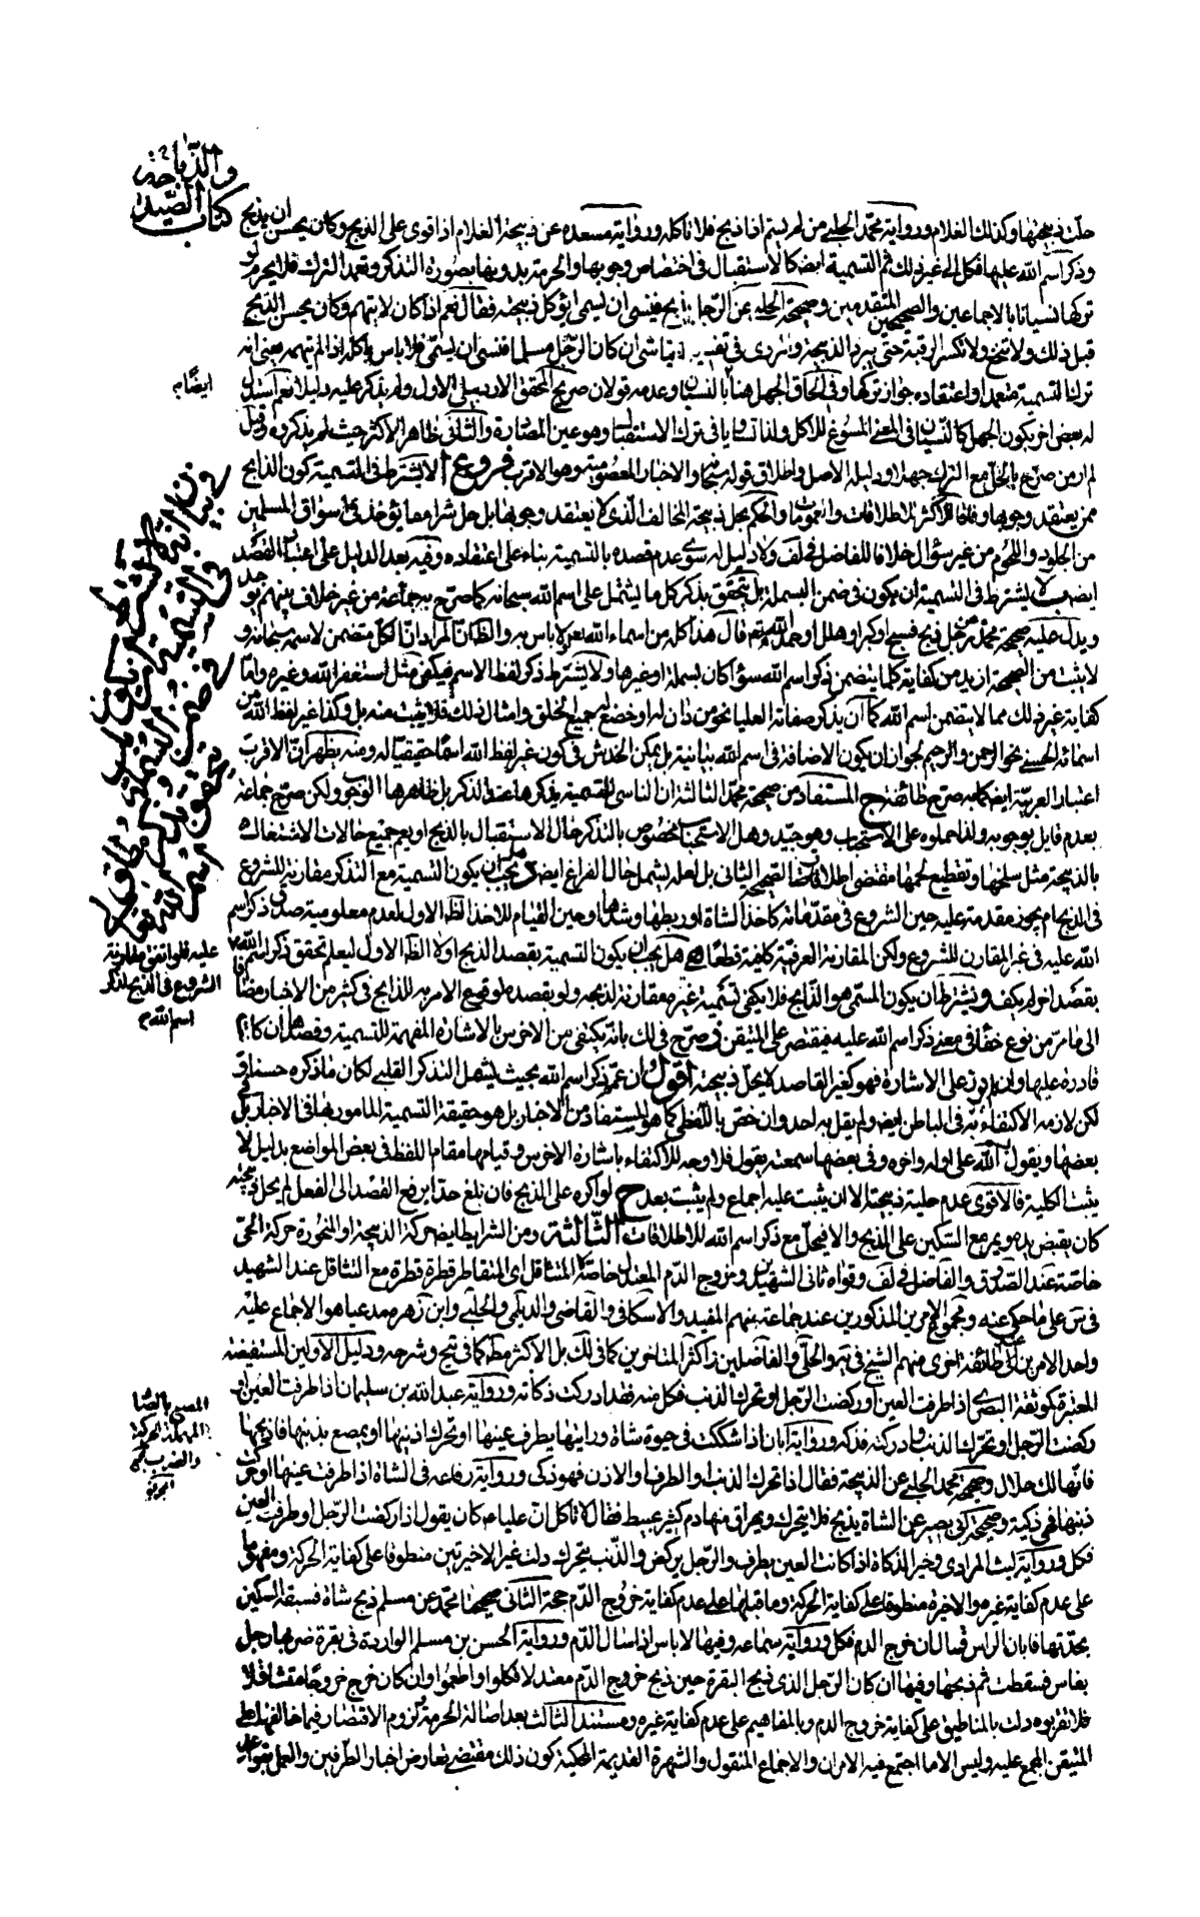 كتاب الصيد
والذباحة
حلت ذبيحتها وكذلك الغلام ورواية محمد الحلبي من لم يستم اذا ذبح فلا تاكله ورواية مسعدة عن ذبيحة الغلام اذا قوى على الذبح وكان يحسن ان يذبح
وذكر اسم الله عليها فكل الى غير ذلك ثم التسمية ايضا كالاستقبال في اختصاص وجوبها والحرمة بدونها بصورة التذكر وتعمد الترك فلا يحرم لو
تركها نسيانا بالاجماعين والصحيحين المتقدمين وصحيحة الحلبي عن الرجل يذبح فينسى ان يسمى ايؤكل ذبيحته فقال نعم اذا كان لا يتهم وكان يحسن الذبح
قبل ذلك ولا ينخع ولا تكسر الرقبة حتى يبرد الذبيحة وفي تفسير العياشي ان كان الرجل مسلما فنسى ان يسمى فلا باس باكله اذا لم تتهمه يعنى انه
ترك التسمية متعمدا واعتقاده جواز تركها وفي الحاق الجهل هنا بالنسيان وعدمه قولان صريح المحقق الاردبيلى الاول ولم يذكر عليه دليلا نعم استدل
له بعض اخر بكون الجهل كالنسيان في المعنى المسوغ للاكل ولذا تساويا في ترك الاستقبال وهو عين المصادرة والثاني ظاهر الاكثر حيث لم يذكروه وقيل
لم ار من صرح بالحل مع الترك جهلا ودليله الاصل واطلاق قوله سبحانه والاخبار المعصومية وهو الاقرب فروع آ لا يشترط في التسمية كون الذابح
ممن يعتقد وجوبها وفاقا للاكثر للاطلاقات والعمومات والحكم بحل ذبيحة المخالف الذى لا يعتقد وجوبها بل حل شراء ما يؤخذ في اسواق المسلمين
من الجلود واللحوم من غير سؤال خلافا للفاضل في لف ولا دليل له سوى عدم قصده بالتسمية بناء على اعتقاده وفيه بعد الدليل على اعتبار القصد
ايضا ب لا يشترط في التسمية ان يكون في ضمن البسملة بل يتحقق بذكر كل ما يشتمل على اسم الله سبحانه كما صرح به جماعة من غير خلاف بينهم يوجد
ويدل عليه صحيحة محمد من رجل ذبح فسبح او كبر او هلل او حمد الله تعم قال هذا كله من اسماء الله لا باس به والظاهر ان المراد ان الكل متضمن لاسمه سبحانه و
لا يثبت من الصحيحة ازيد من كفاية كلما يتضمن ذكر اسم الله سواء كان بسملة او غيرها ولا يشترط ذكر لفظ الاسم فيكفى مثل استغفر الله وغيره واما
كفاية غير ذلك مما لا يتضمن اسم الله كما ان يذكر صفاته العليا نحو من دان له او خضع له جميع الخلق وامثال ذلك فلا يثبت منه بل وكذا غير لفظ الله من
اسمائه الحسنى نحو الرحمن والرحيم لجواز ان يكون الاضافة في اسم الله بيانية بل يمكن الخدش في كون غير لفظ الله اسما حقيقيا له ومنه يظهر ان الاقرب
اعتبار العربية ايضا كما به صرح طائفة ج المستفاد من صحيحة محمد الثالثة ان الناسى للتسمية يذكرها عند الذكر بل ظاهرها الوجوب ولكن صرح جماعة
بعدم قايل بوجوبه ولذا حملوه على الاستحباب وهو جيد وهل الاستحباب مخصوص بالتذكر حال الاستقبال بالذبح او يعم جميع حالات الاشتغال
بالذبيحة مثل سلخها وتقطيع لحمها مقتضى اطلاق الصحيح الثانى بل لعله يشمل حال الفراغ ايضا د هل يجب ان يكون التسمية مع التذكر مقارنة للشروع
في الذبح ام يجوز مقدمة عليه حين الشروع في مقدماته كاخذ الشاة او ربطها وشدها وحين القيام للاخذ الظاهر الاول لعدم معلومية صدق ذكر اسم
الله عليه في غير المقارن للشروع ولكن المقارنة العرفية كافية قطعا ه هل يجب ان يكون التسمية بقصد الذبح اولا الظاهر الاول ليعلم تحقق ذكر اسم الله
بقصد اخر لم يكف و يشترط ان يكون المسمى هو الذابح فلا يكفى تسمية غيره مقارنة لذبحه ولو بقصده لوقوع الامر به للذابح في كثير من الاخبار مضافا
الى ما مر من نوع خفاء في معنى ذكر اسم الله عليه فيقتصر على المتيقن ز صرح في لك بانه يكتفى من الاخرس بالاشارة المفهمة للتسمية وفصل ان كان
قادرا عليها وان لم يقدر على الاشارة فهو كغير القاصد لا يحل ذبيحته اقول وان عم ذكر اسم الله بحيث يشمل التذكر القلبى لكان ما ذكره حسنا و
لكن لازمه الاكتفاء به في الباطن ايضا ولم يقل به احد وان خص باللفظى كما هو المستفاد من الاخبار بل هو حقيقة التسمية المامور بها في الاخبار بل في
بعضها ويقول بسم الله على اوله واخره وفي بعضها سمعته يقول فلا وجه للاكتفاء باشارة الاخرس وقيامها مقام اللفظ في بعض المواضع بدليل لا
يثبت الكلية فالاقوى عدم حلية ذبيحته الا ان يثبت عليه اجماع ولم يثبت بعد ح لو اكره على الذبح فان بلغ حدا يرفع القصد الى الفعل لم يحل ذبيحته
كان يقبض يده ويمر مع السكين على المذبح والا فيحل مع ذكر اسم الله للاطلاقات الثالثة ومن الشرايط ايضا حركة الذبيحة او المنحورة حركة الحى
خاصة عند الصدوق والفاضل في لف وقواه ثانى الشهيدين وخروج الدم المعتدل خاصة لا المتثاقل اى المتقاطر قطرة قطرة مع التثاقل عند الشهيد
في س على ما حكى عنه ومجموع الامرين المذكورين عند جماعة منهم المفيد والاسكافى والقاضى والديلمى والحلبى وابن زهرة مدعيا هو الاجماع عليه
واحد الامرين عند طائفة اخرى منهم الشيخ في يه والحلى والفاضلين واكثر المتاخرين كما في لك بل الاكثر مطلقا كما في تيج وشرحه ودليل الاولين المستفيضة
المعتبرة كموثقة البصرى اذا طرفت العين او ركضت الرجل او تحرك الذنب فكل منه فقد ادركت ذكاته ورواية عبد الله بن سليمان اذا طرفت العين او
ركضت الرجل او تحرك الذنب وادركته فذكه ورواية ابان اذا شككت في حيوة شاة ورايتها يطرف عينها او تحرك اذنيها او يمصع بذنبها فاذبحها
فانها لك حلال وصحيحة محمد الحلبى عن الذبيحة فقال اذا تحرك الذنب او الطرف او الاذن فهو ذكى ورواية رفاعة في الشاة اذا طرفت عينها او حركت
ذنبها فهي ذكية وصحيحة ابى بصير عن الشاة يذبح فلا يتحرك ويهراق منها دم كثير عبيط فقال لا تاكل ان عليا ع كان يقول اذا ركضت الرجل او طرفت العين
فكل ورواية ليث المرادى وخير الذكاة اذا كانت العين يطرف والرجل يركض والذنب يتحرك دلت غير الاخيرتين منطوقا على كفاية الحركة ومفهوما
على عدم كفاية غيره والاخيرة منطوقا على كفاية الحركة وما قبلها على عدم كفاية خروج الدم حجة الثانى صحيحة محمد عن مسلم ذبح شاة فسبقه السكين
بحدتها فابان الراس فقال ان خرج الدم فكل ورواية سماعة وفيها لا باس اذا سال الدم ورواية الحسن بن مسلم الواردة في بقرة ضربها رجل
بفاس فسقطت ثم ذبحها وفيها ان كان الرجل الذى ذبح البقرة حين ذبح خروج الدم معتدلا فكلوا واطعموا وان كان خرج خروجا متثاقلا
فلا تقربوه دلت بالمناطيق على كفاية خروج الدم وبالمفاهيم على عدم كفاية غيره ومستند الثالث بعد اصالة الحرمة ولزوم الاقتصار فيما خالفها على
المتيقن المجمع عليه وليس الا ما اجتمع فيه الامران والاجماع المنقول والشهرة القديمة المحكية كون ذلك مقتضى تعارض اخبار الطرفين والعمل بقواعد
ايضا م
عليه فلو اتفق مقارنة
الشروع في الذبح لذكر
اسم الله م
المصع بالصاد
المهملة الحركة
والضرب